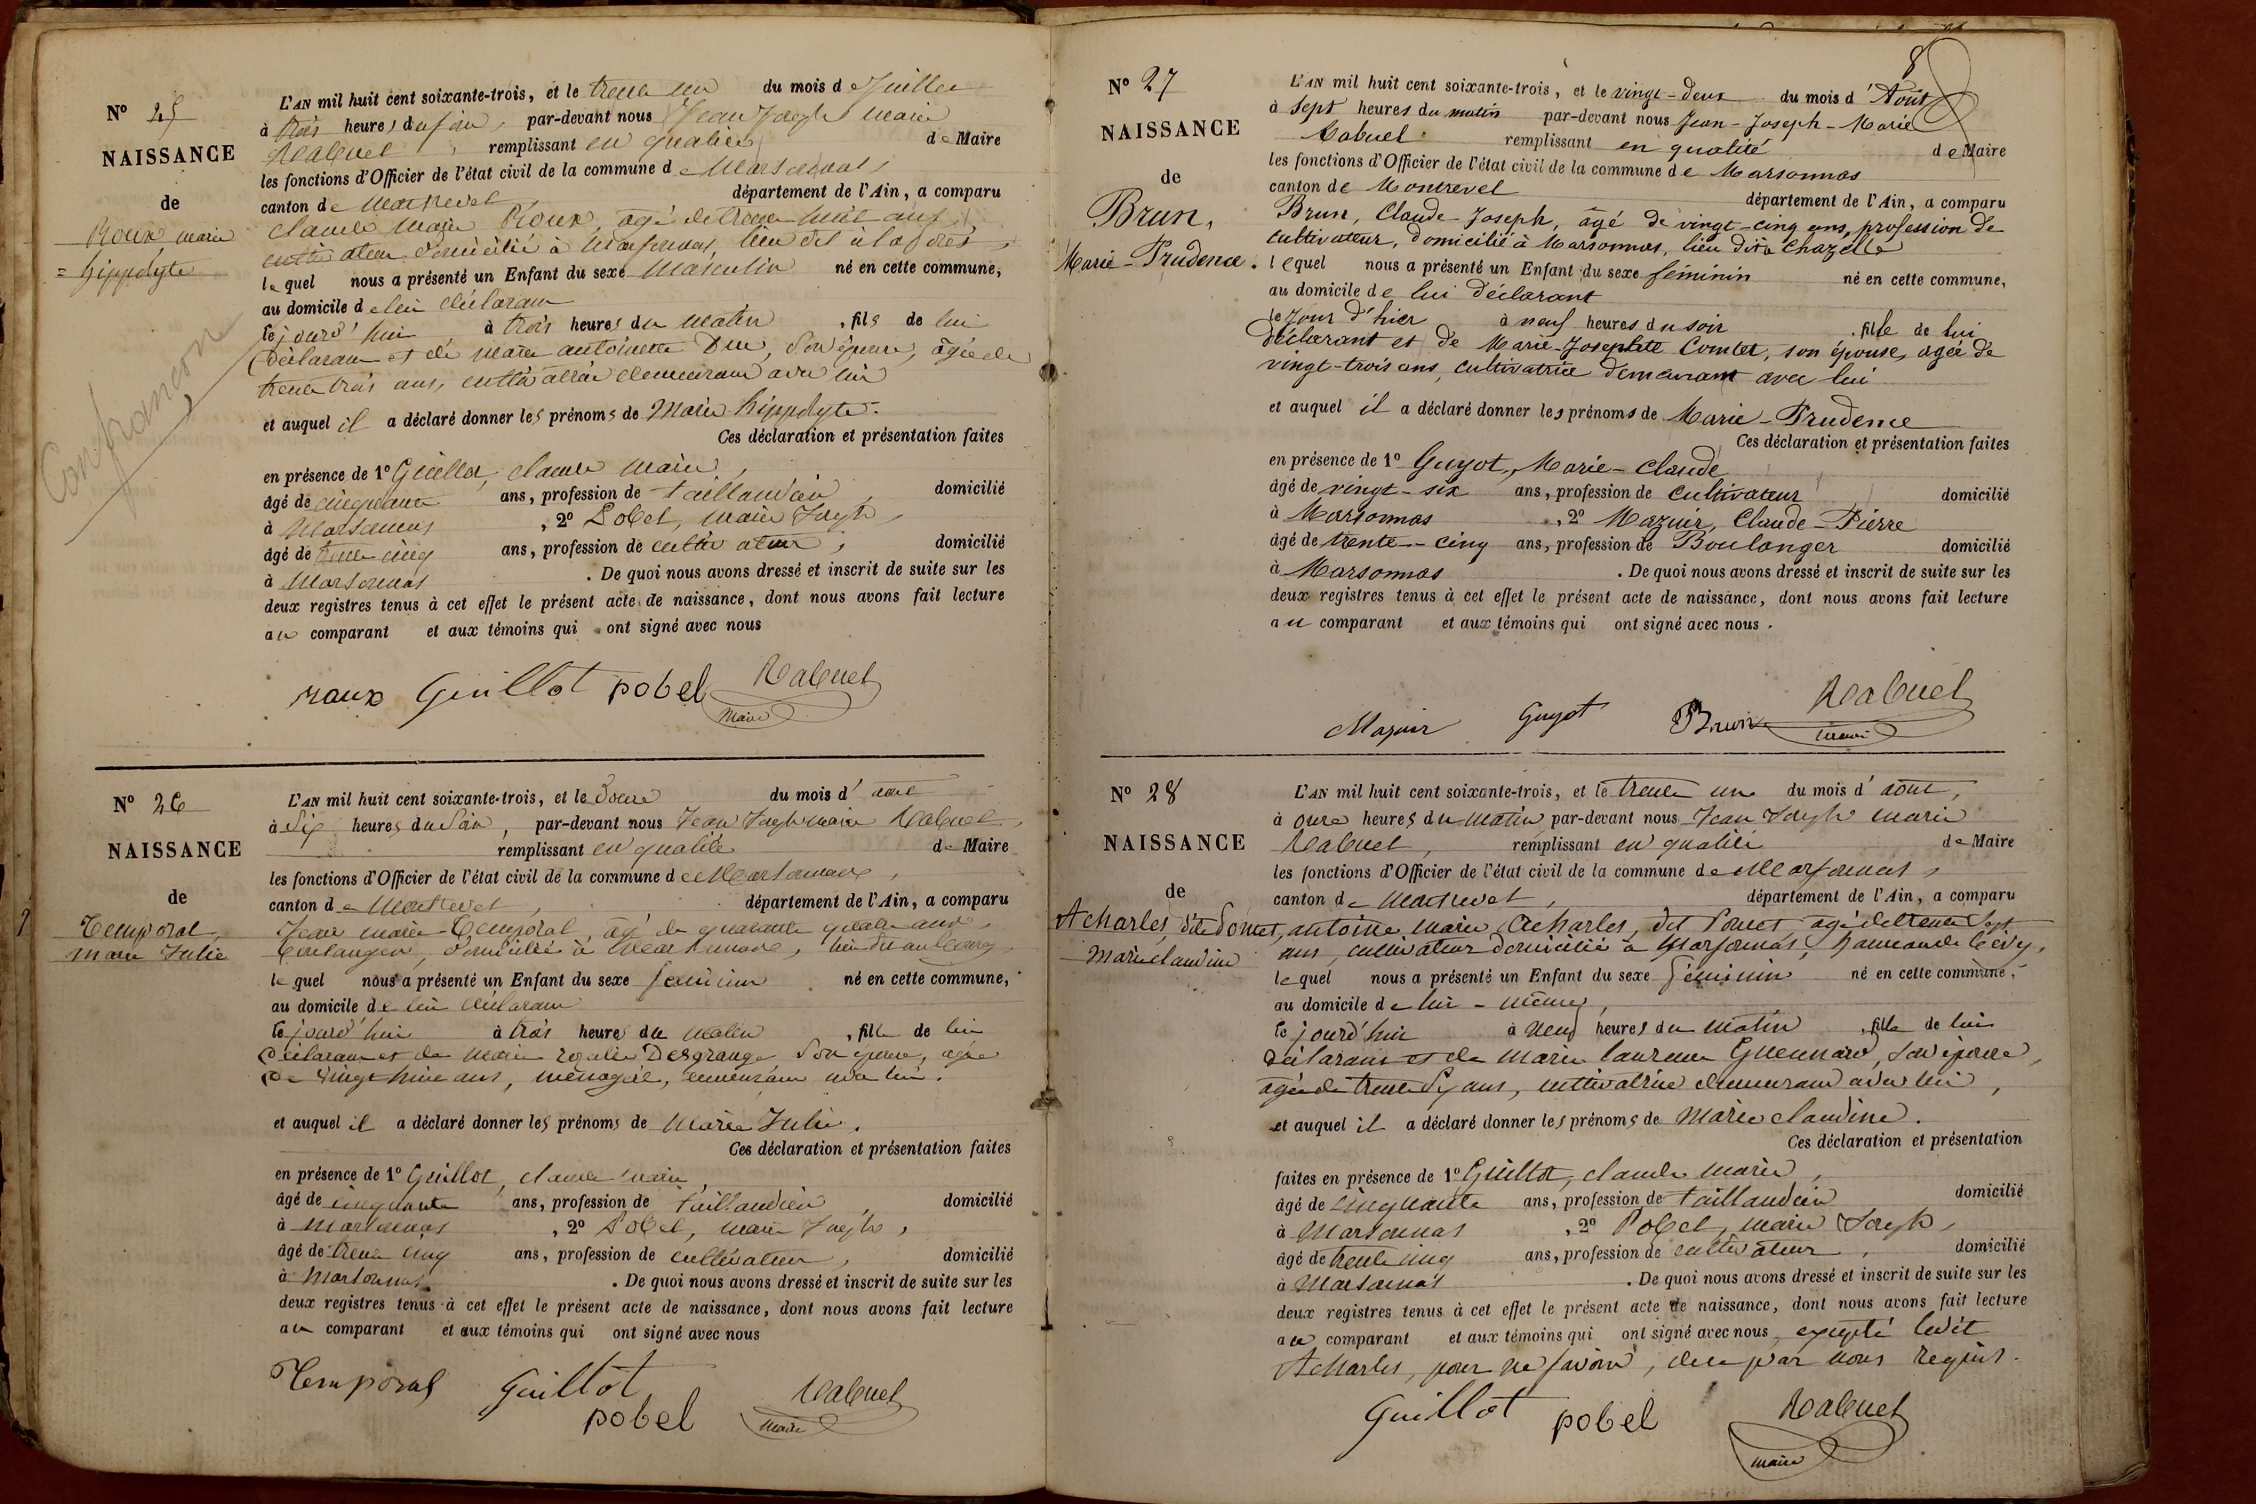 Nº 25
NAISSANCE
de
Roux marie
= hippolyte
Confrançon
L'AN mil huit cent soixante-trois, et le trente un du mois d Juillet
à trois heures du soir, par-devant nous Jean Joseph marie
Rabuel, remplissant en qualité de Maire
les fonctions d'Officier de l'état civil de la commune de Marsonnas,
canton de Montrevel, département de l'Ain, a comparu
claude marie Roux, agé de trente ans,
cultivateur domicilié à Marsonnas, lieu dit
lequel nous a présenté un Enfant du sexe Masculin né en cette commune,
au domicile de lui déclarant
le jourd'hui à trois heures du matin, fils de lui
Déclarant et de marie antoinette Duc, son épouse, agée de
trente trois ans, cultivatrice demeurant avec lui
et auquel il a déclaré donner les prénoms de Marie hippolyte.
Ces déclaration et présentation faites
en présence de 1º Guillot, claude marie,
âgé de cinquante ans, profession de taillandier, domicilié
à Marsonnas, 2º Pobel, marie Joseph,
âgé de trente cinq ans, profession de cultivateur, domicilié
à Marsonnas. De quoi nous avons dressé et inscrit de suite sur les
deux registres tenus à cet effet le présent acte de naissance, dont nous avons fait lecture
au comparant et aux témoins qui ont signé avec nous
roux Guillot pobel Rabuel
Maire
Nº 26
NAISSANCE
de
Temporal,
marie Julie
L'AN mil huit cent soixante-trois, et le Douze du mois d' aout
à Six heures du Soir, par-devant nous Jean Joseph marie Rabuel,
remplissant en qualité de Maire
les fonctions d'Officier de l'état civil de la commune de Marsonnas,
canton de Montrevel, département de l'Ain, a comparu
Jean marie Temporal, agé de quarante quatre ans,
boulanger, domicilié à Marsonnas, lieu dit au bourg,
lequel nous a présenté un Enfant du sexe féminin né en cette commune,
au domicile de lui déclarant
le jourd'hui à trois heures du matin, fille de lui
Déclarant et de Marie rosalie Desgrange son épouse, agée
De vingt huit ans, ménagère, demeurant avec lui.
et auquel il a déclaré donner les prénoms de Marie Julie.
Ces déclaration et présentation faites
en présence de 1º Guillot, claude marie,
âgé de cinquante ans, profession de taillandier, domicilié
à Marsonnas, 2º Pobel, marie Joseph,
âgé de trente cinq ans, profession de cultivateur, domicilié
à Marsonnas. De quoi nous avons dressé et inscrit de suite sur les
deux registres tenus à cet effet le présent acte de naissance, dont nous avons fait lecture
au comparant et aux témoins qui ont signé avec nous
Temporal Guillot Rabuel
pobel maire
8
Nº 27
NAISSANCE
de
Brun,
Marie-Prudence.
L'AN mil huit cent soixante-trois, et le vingt-deux du mois d'Août
à sept heures du matin par-devant nous Jean-Joseph-Marie
Rabuel remplissant en qualité de Maire
les fonctions d'Officier de l'état civil de la commune de Marsonnas
canton de Montrevel département de l'Ain, a comparu
Brun, Claude-Joseph, âgé de vingt-cinq ans, profession de
cultivateur, domicilié à Marsonnas, lieu dit à Chazelle
lequel nous a présenté un Enfant du sexe féminin né en cette commune,
au domicile de lui Déclarant
le jour d'hier à neuf heures du soir, fille de lui
Déclarant et de Marie-Josephte Comtet, son épouse, agée de
vingt-trois ans, cultivatrice demeurant avec lui
et auquel il a déclaré donner les prénoms de Marie-Prudence
Ces déclaration et présentation faites
en présence de 1º Guyot, Marie-Claude
âgé de vingt-six ans, profession de cultivateur domicilié
à Marsonnas, 2º Mazuir, Claude-Pierre
âgé de trente-cinq ans, profession de Boulanger domicilié
à Marsonnas. De quoi nous avons dressé et inscrit de suite sur les
deux registres tenus à cet effet le présent acte de naissance, dont nous avons fait lecture
au comparant et aux témoins qui ont signé avec nous.
Mazuir Guyot Brun Rabuel
maire
Nº 28
NAISSANCE
de
Acharles dite Domet,
Marie claudine
L'AN mil huit cent soixante-trois, et le trente un du mois d'aout,
à onze heures du matin, par-devant nous Jean Joseph marie
Rabuel, remplissant en qualité de Maire
les fonctions d'Officier de l'état civil de la commune de Marsonnas,
canton de Montrevel, département de l'Ain, a comparu
antoine marie Acharles, dit Domet, agé de trente sept
ans, cultivateur domicilié à Marsonnas, hameau de
lequel nous a présenté un Enfant du sexe féminin né en cette commune,
au domicile de lui-même,
le jourd'hui à neuf heures du matin, fille de lui
déclarant et de marie laurence Guennard, son épouse,
agée de trente six ans, cultivatrice demeurant avec lui,
et auquel il a déclaré donner les prénoms de Marie claudine.
Ces déclaration et présentation
faites en présence de 1º Guillot, claude marie,
âgé de cinquante ans, profession de taillandier domicilié
à Marsonnas, 2º Pobel, marie Joseph,
âgé de trente cinq ans, profession de cultivateur, domicilié
à Marsonnas. De quoi nous avons dressé et inscrit de suite sur les
deux registres tenus à cet effet le présent acte de naissance, dont nous avons fait lecture
au comparant et aux témoins qui ont signé avec nous, excepté ledit
Acharles, pour ne savoir, de ce par nous requis.
Guillot pobel Rabuel
maire